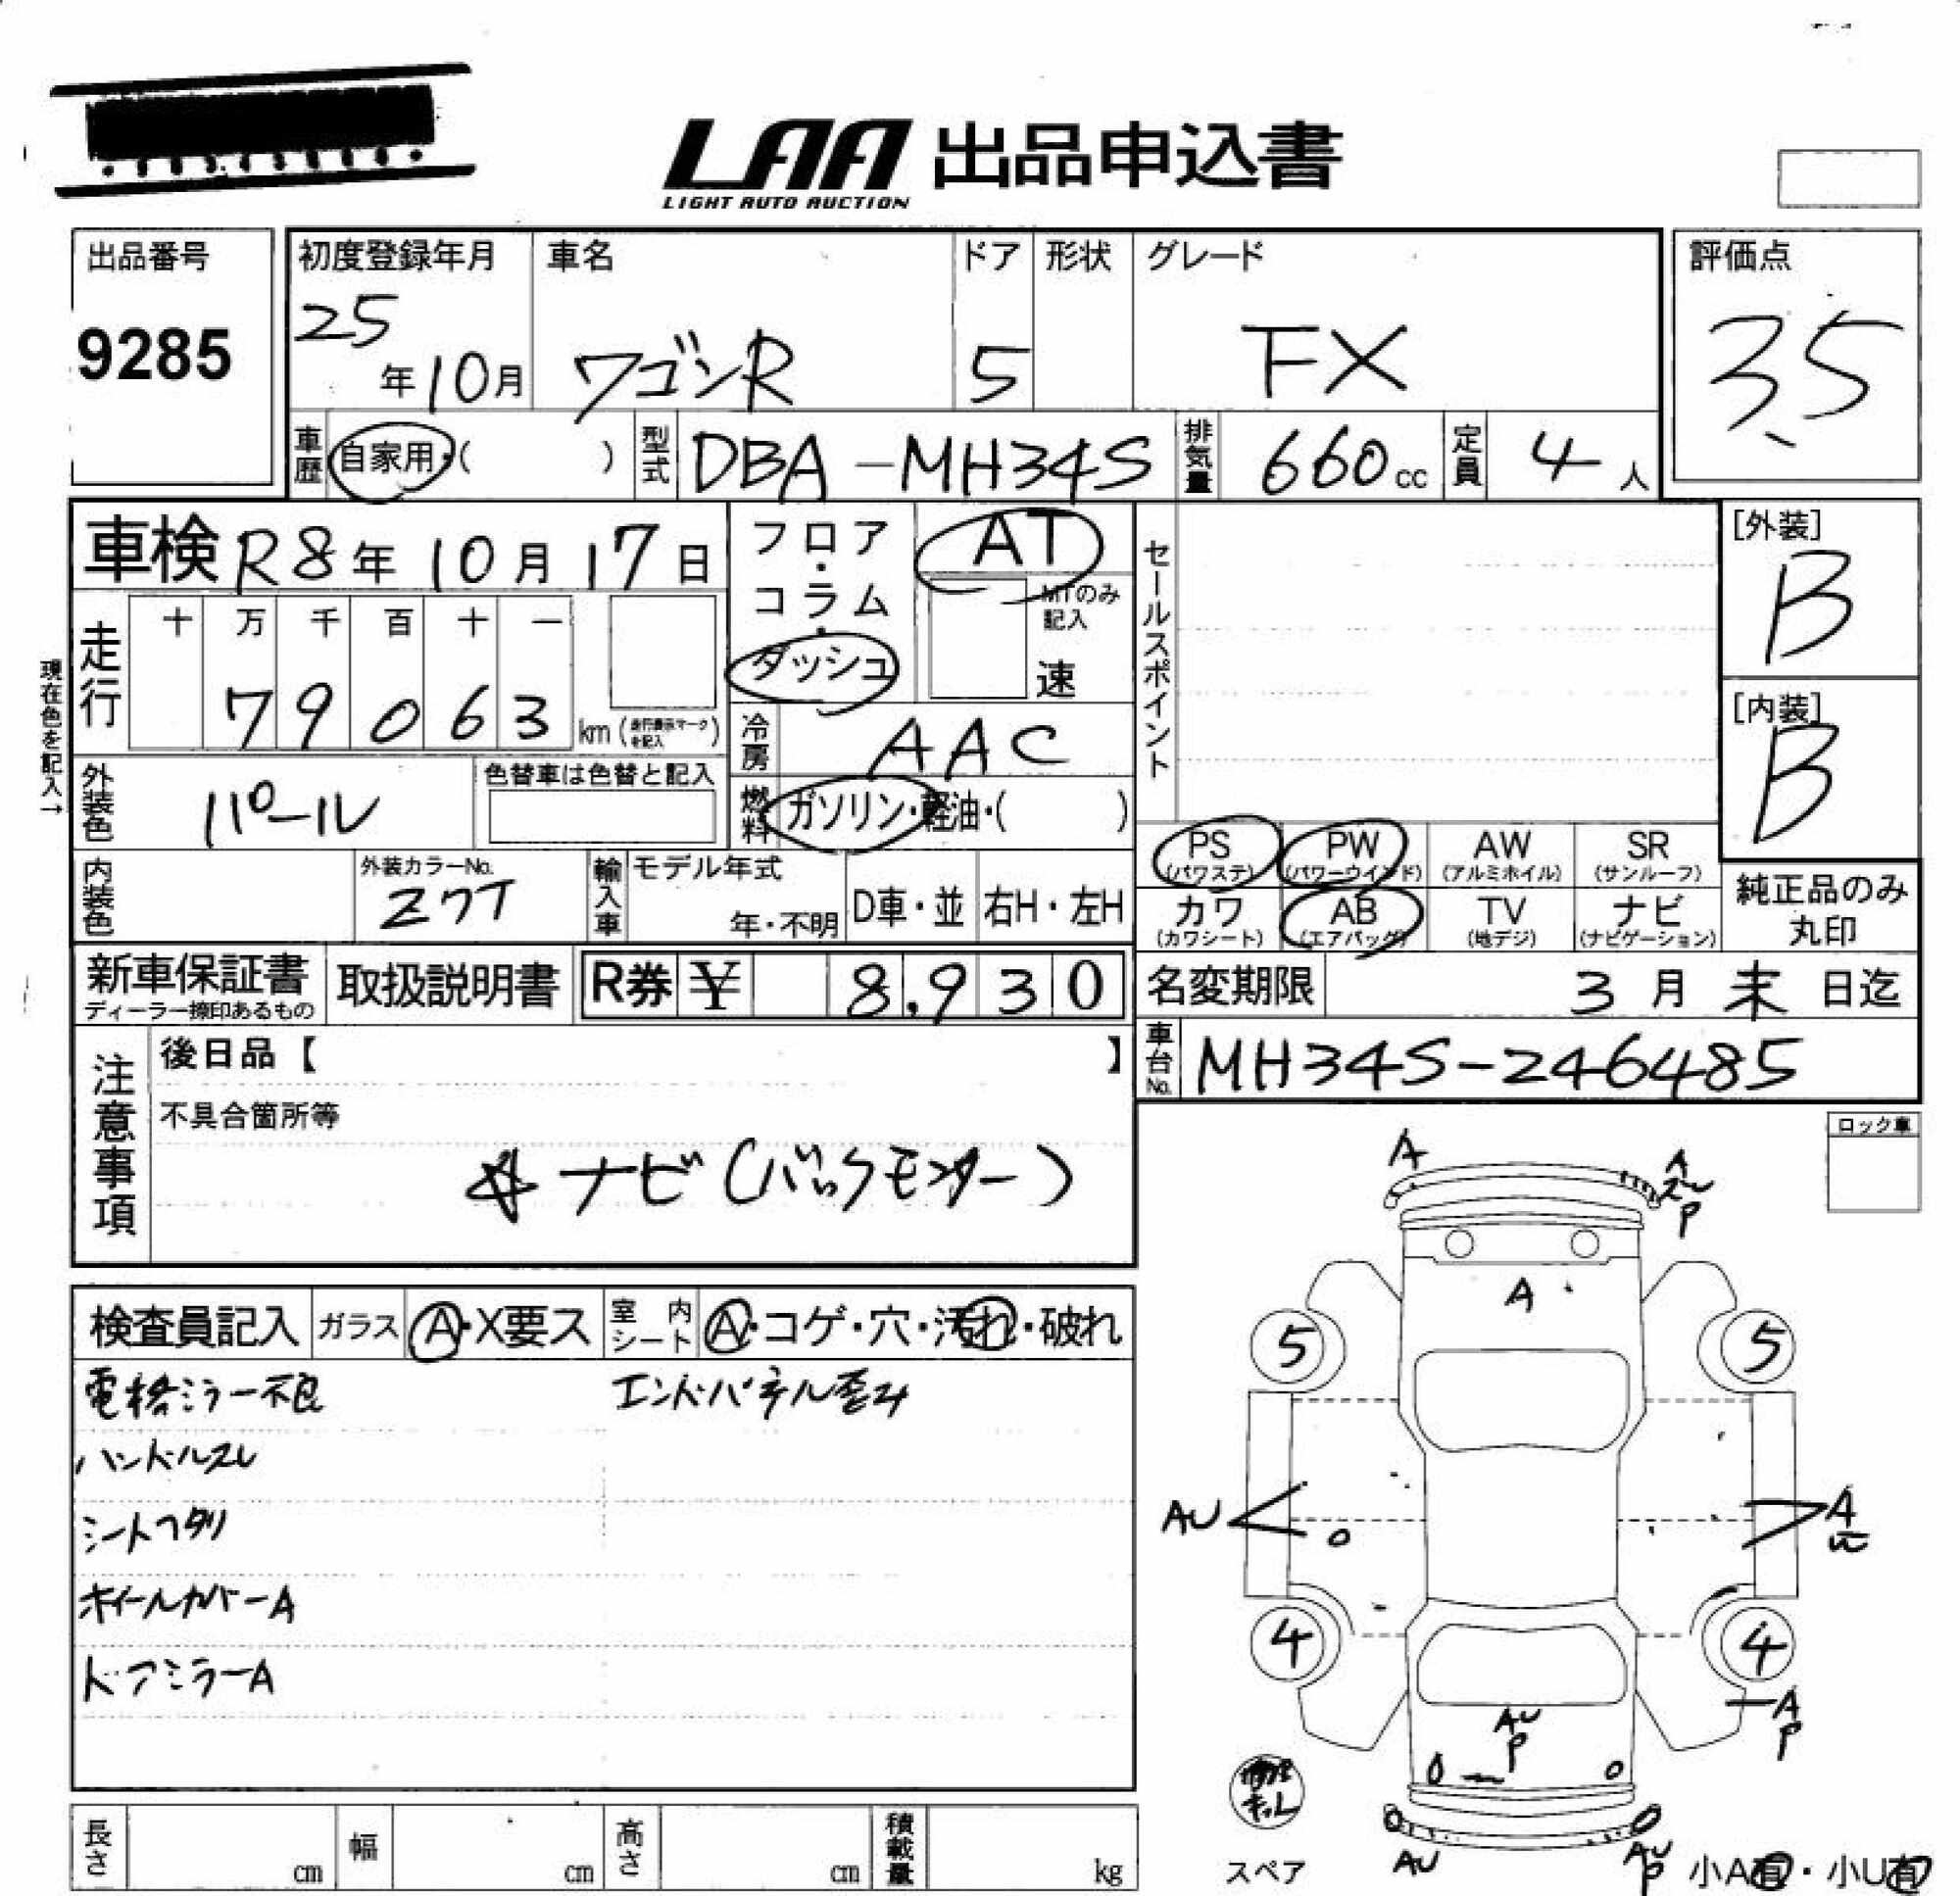 LAA 出品申込書
LIGHT AUTO AUCTION
出品番号
9285
初度登録年月
25年10月
車名
ワゴンR
ドア
5
形状
グレード
FX
評価点
3.5
車歴 自家用・( )
型式 DBA-MH34S
排気量 660cc
定員 4人
車検 R8年10月17日
フロア・コラム・ダッシュ
AT
MTのみ記入
速
セールスポイント
[外装]
B
[内装]
B
現在色を記入→
走行
十 万 千 百 十 一
7 9 0 6 3 km (走行表示マークを記入)
冷房 AAC
外装色 パール
色替車は色替と記入
燃料 ガソリン・軽油・( )
PS (パワステ)
PW (パワーウインド)
AW (アルミホイル)
SR (サンルーフ)
カワ (カワシート)
AB (エアバッグ)
TV (地デジ)
ナビ (ナビゲーション)
純正品のみ丸印
内装色
外装カラーNo.
Z7T
輸入車
モデル年式
年・不明
D車・並
右H・左H
新車保証書
ディーラー捺印あるもの
取扱説明書
R券 ¥ 8,930
名変期限 3月末日迄
車台No. MH34S-246485
注意事項
後日品【 】
不具合箇所等
☆ナビ(バックモニター)
ロック車
検査員記入
ガラス A・X要ス
室内シート A・コゲ・穴・汚れ・破れ
電格ミラー不良
エンドパネル歪み
ハンドルスレ
シートヘタリ
ホイールカバーA
ドアミラーA
A
A
P
A
5
5
AU
A
4
4
A
P
AU
P
AU
AU
P
スペア
小A有・小U有
長さ cm
幅 cm
高さ cm
積載量 kg